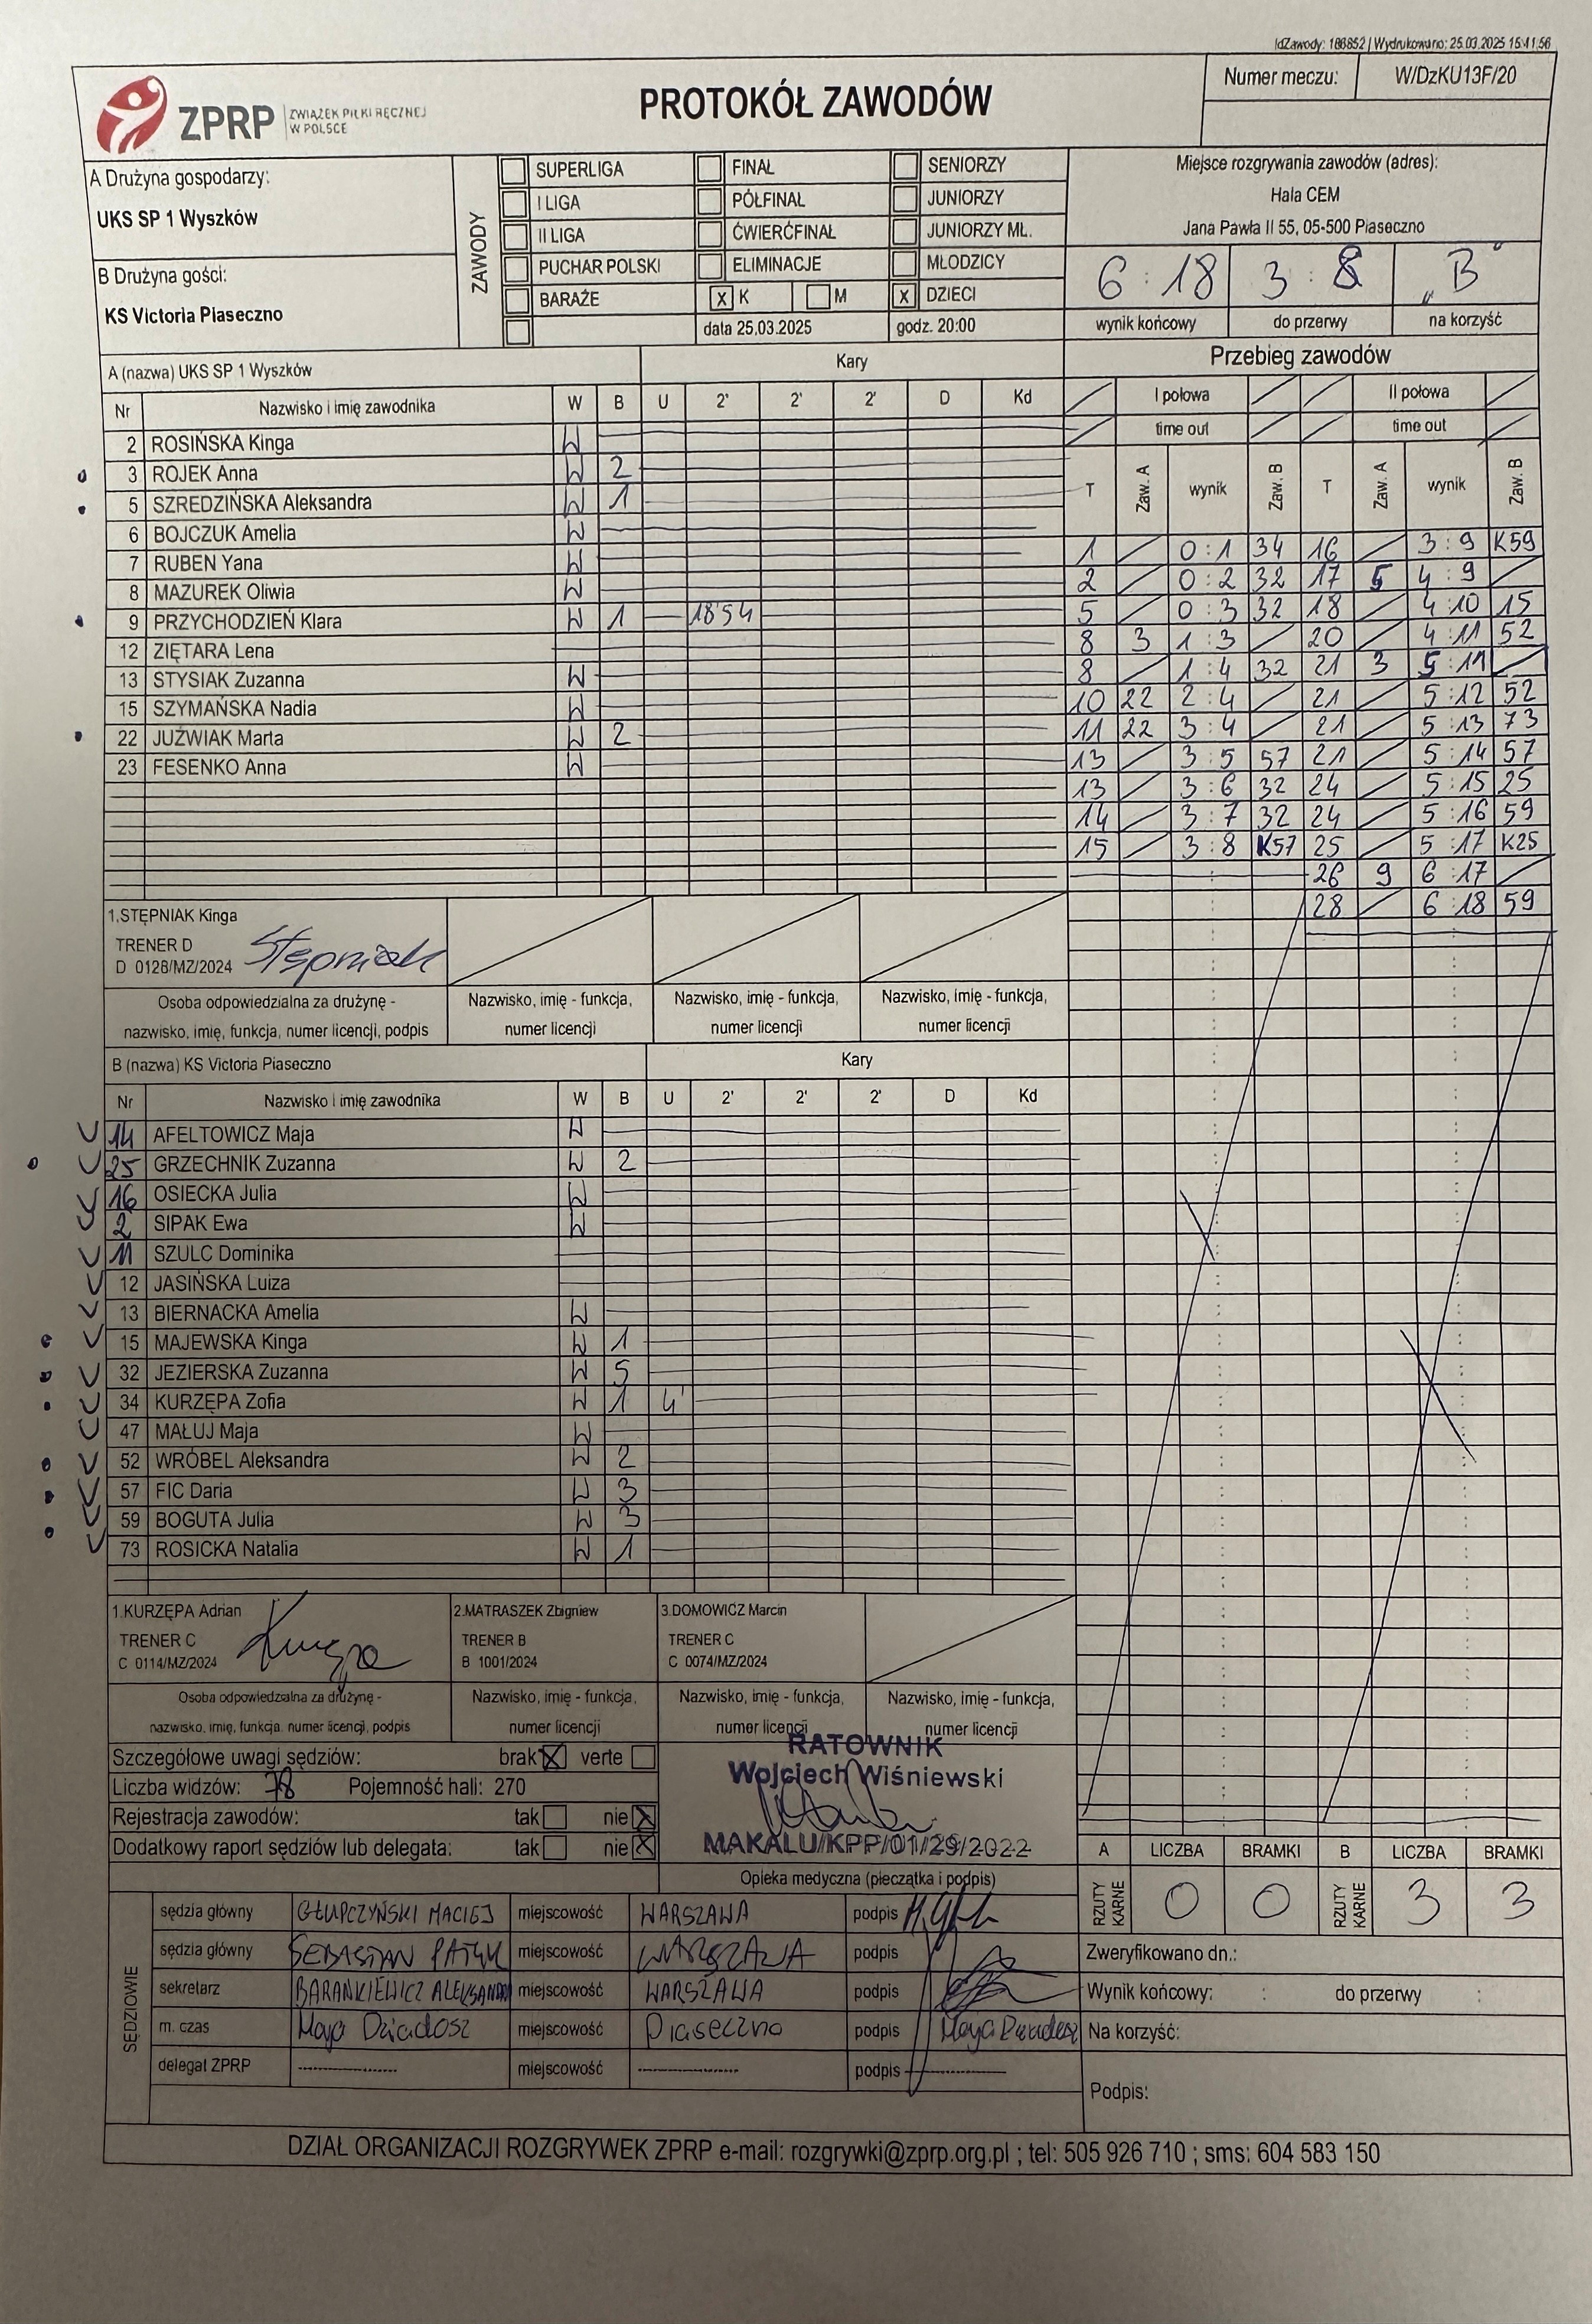 IdZawody: 186852 | Wydrukowano: 25.03.2025 15:41:56
ZPRP ZWIĄZEK PIŁKI RĘCZNEJ W POLSCE
PROTOKÓŁ ZAWODÓW
Numer meczu: W/DzKU13F/20
A Drużyna gospodarzy:
UKS SP 1 Wyszków
B Drużyna gości:
KS Victoria Piaseczno
ZAWODY
SUPERLIGA FINAŁ SENIORZY
I LIGA PÓŁFINAŁ JUNIORZY
II LIGA ĆWIERĆFINAŁ JUNIORZY MŁ.
PUCHAR POLSKI ELIMINACJE MŁODZICY
BARAŻE x K M x DZIECI
data 25.03.2025 godz. 20:00
Miejsce rozgrywania zawodów (adres):
Hala CEM
Jana Pawła II 55, 05-500 Piaseczno
6 : 18 3 : 8 „B"
wynik końcowy do przerwy na korzyść
A (nazwa) UKS SP 1 Wyszków Kary
Nr Nazwisko i imię zawodnika W B U 2' 2' 2' D Kd
2 ROSIŃSKA Kinga W
3 ROJEK Anna W 2
5 SZREDZIŃSKA Aleksandra W 1
6 BOJCZUK Amelia W
7 RUBEN Yana W
8 MAZUREK Oliwia W
9 PRZYCHODZIEŃ Klara W 1 18'54
12 ZIĘTARA Lena
13 STYSIAK Zuzanna W
15 SZYMAŃSKA Nadia W
22 JUŹWIAK Marta W 2
23 FESENKO Anna W
Przebieg zawodów
I połowa II połowa
time out time out
T Zaw. A wynik Zaw. B T Zaw. A wynik Zaw. B
1 0:1 34 16 3:9 K59
2 0:2 32 17 5 4:9
5 0:3 32 18 4:10 15
8 3 1:3 20 4:11 52
8 1:4 32 21 3 5:11
10 22 2:4 21 5:12 52
11 22 3:4 21 5:13 73
13 3:5 57 21 5:14 57
13 3:6 32 24 5:15 25
14 3:7 32 24 5:16 59
15 3:8 K57 25 5:17 K25
26 9 6:17
28 6:18 59
1.STĘPNIAK Kinga
TRENER D
D 0128/MZ/2024 Stępniak
Osoba odpowiedzialna za drużynę - nazwisko, imię, funkcja, numer licencji, podpis
Nazwisko, imię - funkcja, numer licencji
Nazwisko, imię - funkcja, numer licencji
Nazwisko, imię - funkcja, numer licencji
B (nazwa) KS Victoria Piaseczno Kary
Nr Nazwisko i imię zawodnika W B U 2' 2' 2' D Kd
14 AFELTOWICZ Maja W
25 GRZECHNIK Zuzanna W 2
16 OSIECKA Julia W
2 SIPAK Ewa W
11 SZULC Dominika
12 JASIŃSKA Luiza
13 BIERNACKA Amelia W
15 MAJEWSKA Kinga W 1
32 JEZIERSKA Zuzanna W 5
34 KURZĘPA Zofia W 1 4'
47 MAŁUJ Maja W
52 WRÓBEL Aleksandra W 2
57 FIC Daria W 3
59 BOGUTA Julia W 3
73 ROSICKA Natalia W 1
1.KURZĘPA Adrian
TRENER C
C 0114/MZ/2024 Kurzępa
2.MATRASZEK Zbigniew
TRENER B
B 1001/2024
3.DOMOWICZ Marcin
TRENER C
C 0074/MZ/2024
Osoba odpowiedzialna za drużynę - nazwisko, imię, funkcja, numer licencji, podpis
Nazwisko, imię - funkcja, numer licencji
Nazwisko, imię - funkcja, numer licencji
Nazwisko, imię - funkcja, numer licencji
Szczegółowe uwagi sędziów: brak X verte
Liczba widzów: 78 Pojemność hali: 270
Rejestracja zawodów: tak nie X
Dodatkowy raport sędziów lub delegata: tak nie X
RATOWNIK
Wojciech Wiśniewski
MAKALU/KPP/01/29/2022
Opieka medyczna (pieczątka i podpis)
A LICZBA BRAMKI B LICZBA BRAMKI
RZUTY KARNE 0 0 RZUTY KARNE 3 3
SĘDZIOWIE
sędzia główny GŁUPCZYŃSKI MACIEJ miejscowość WARSZAWA podpis
sędzia główny SEBASTIAN PATYK miejscowość WARSZAWA podpis
sekretarz BARANKIEWICZ ALEKSANDRA miejscowość WARSZAWA podpis
m. czas Maja Dziadosz miejscowość Piaseczno podpis Maja Dziadosz
delegat ZPRP miejscowość podpis
Zweryfikowano dn.:
Wynik końcowy: : do przerwy :
Na korzyść:
Podpis:
DZIAŁ ORGANIZACJI ROZGRYWEK ZPRP e-mail: rozgrywki@zprp.org.pl ; tel: 505 926 710 ; sms: 604 583 150